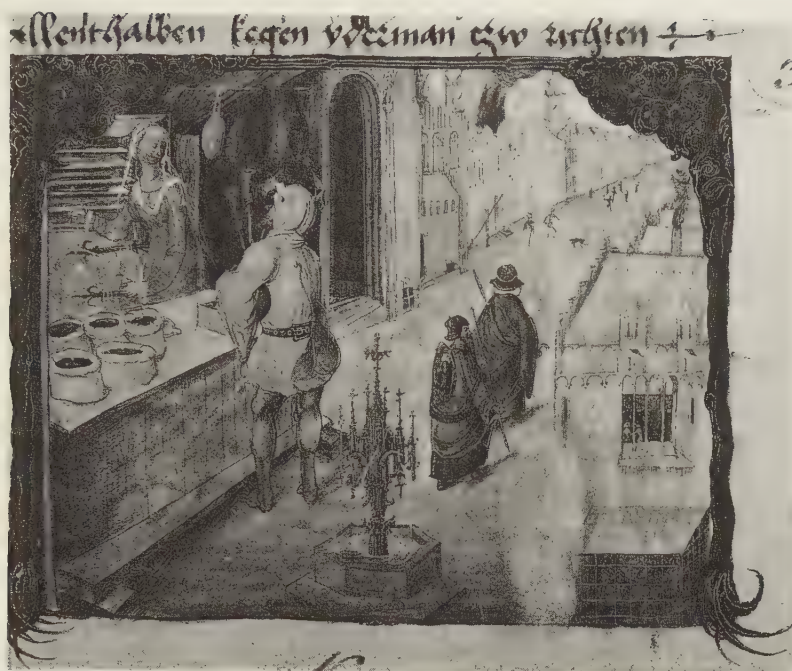 allenthalben kegen yderman tzw richten